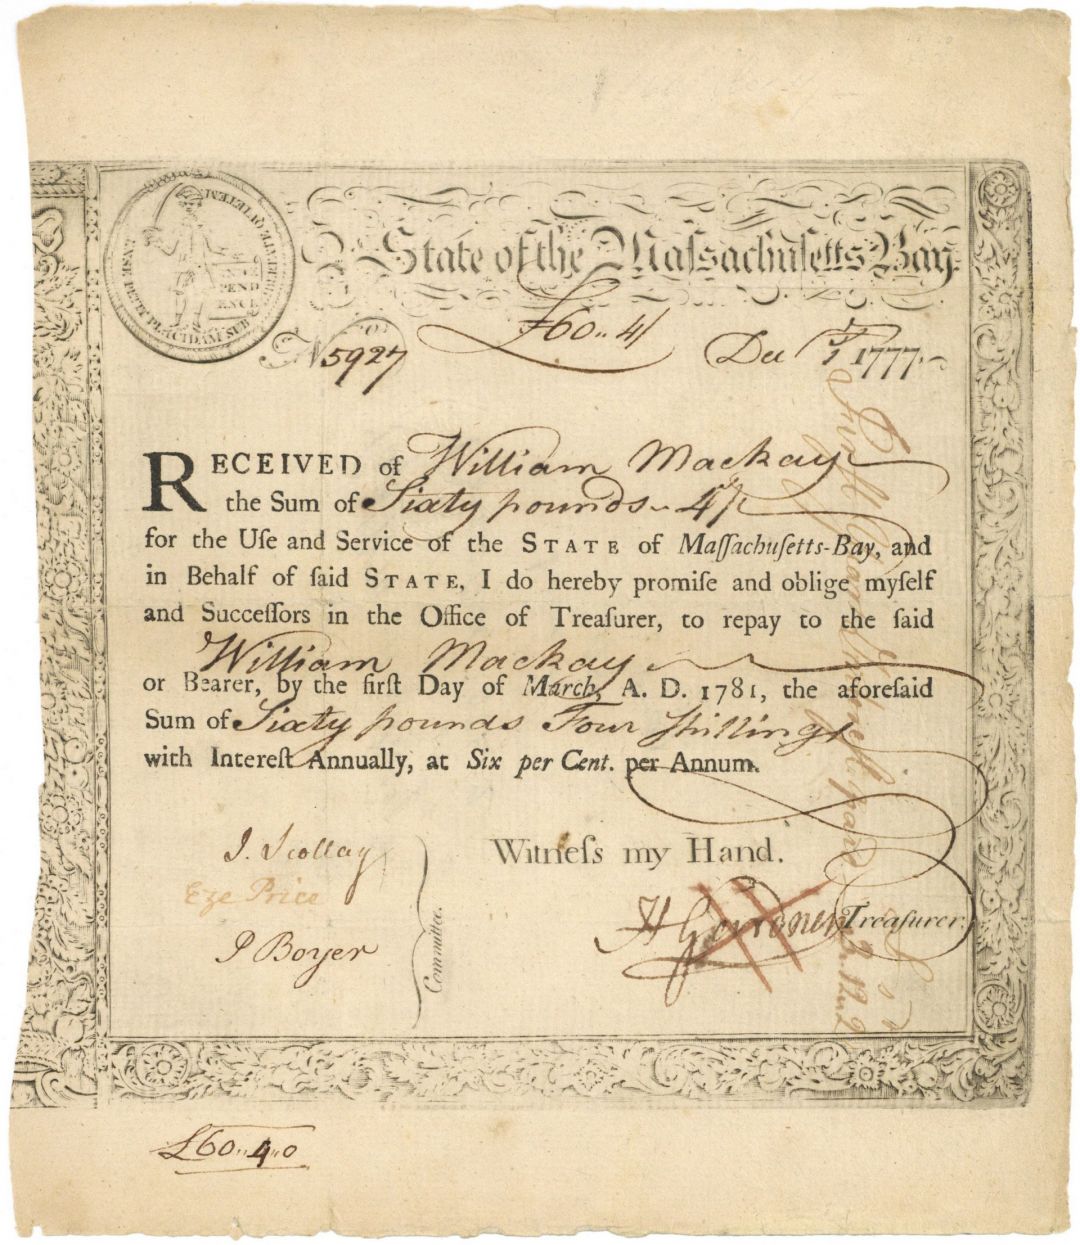 ENSE PETIT PLACIDAM SUB LIBERTATE QUIETEM
INDE
PEND
ENCE
State of the Maſsachuſetts Bay.
£60..4/
No 5927 Dec 1st 1777.
RECEIVED of William Mackay
the Sum of Sixty pounds 4/
for the Uſe and Service of the STATE of Maſſachuſetts-Bay, and
in Behalf of ſaid STATE, I do hereby promiſe and oblige myſelf
and Succeſſors in the Office of Treaſurer, to repay to the ſaid
William Mackay
or Bearer, by the firſt Day of March, A. D. 1781, the aforeſaid
Sum of Sixty pounds Four ſhillings
with Intereſt Annually, at Six per Cent. per Annum.
J. Scollay
Eze Price
P Boyer
Committee.
Witneſs my Hand.
H Gardner Treaſurer.
£60..4..0